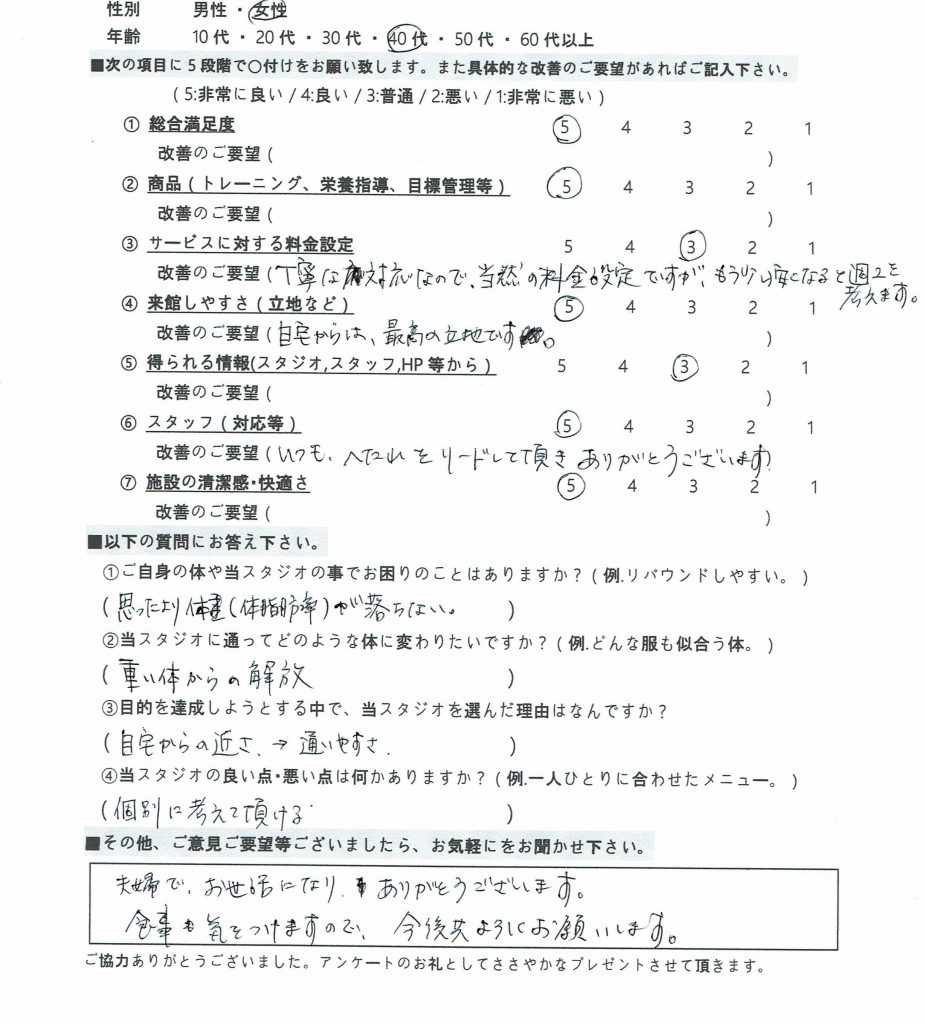 性別 男性 ・ 女性
年齢 10代 ・ 20代 ・ 30代 ・ 40代 ・ 50代 ・ 60代以上
■次の項目に5段階で〇付けをお願い致します。また具体的な改善のご要望があればご記入下さい。
( 5:非常に良い / 4:良い / 3:普通 / 2:悪い / 1:非常に悪い )
① 総合満足度 5 4 3 2 1
改善のご要望 ( )
② 商品 ( トレーニング、栄養指導、目標管理等 ) 5 4 3 2 1
改善のご要望 ( )
③ サービスに対する料金設定 5 4 3 2 1
改善のご要望 ( 丁寧な対応なので、当然の料金設定ですが、もう少し安くなると週2を
考えます。
④ 来館しやすさ ( 立地など ) 5 4 3 2 1
改善のご要望 ( 自宅からは、最高の立地です。 )
⑤ 得られる情報(スタジオ,スタッフ,HP 等から ) 5 4 3 2 1
改善のご要望 ( )
⑥ スタッフ ( 対応等 ) 5 4 3 2 1
改善のご要望 ( いつも、へたれをリードして頂きありがとうございます )
⑦ 施設の清潔感・快適さ 5 4 3 2 1
改善のご要望 ( )
■以下の質問にお答え下さい。
①ご自身の体や当スタジオの事でお困りのことはありますか? ( 例.リバウンドしやすい。 )
( 思ったより体重(体脂肪率)が落ちない。 )
②当スタジオに通ってどのような体に変わりたいですか? ( 例.どんな服も似合う体。 )
( 重い体からの解放 )
③目的を達成しようとする中で、当スタジオを選んだ理由はなんですか?
( 自宅からの近さ. → 通いやすさ. )
④当スタジオの良い点・悪い点は何かありますか? ( 例.一人ひとりに合わせたメニュー。 )
( 個別に考えて頂ける )
■その他、ご意見ご要望等ございましたら、お気軽にをお聞かせ下さい。
夫婦で、お世話になり、ありがとうございます。
食事も気をつけますので、今後共ようにお願いします。
ご協力ありがとうございました。アンケートのお礼としてささやかなプレゼントさせて頂きます。